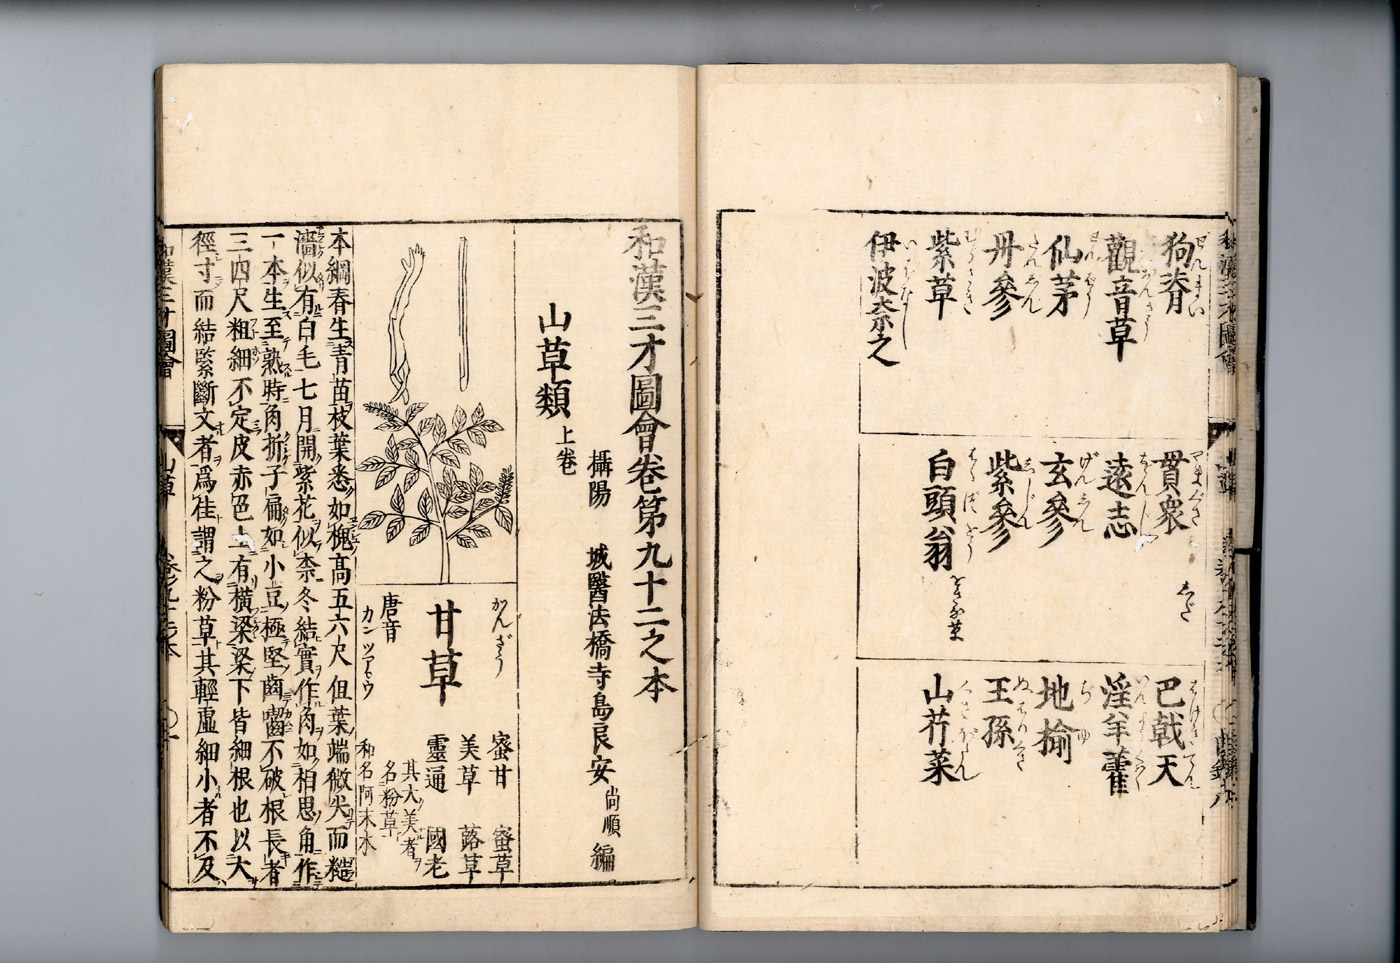 狗脊 ぜんまい
貫衆
しだ
巴戟天 はげきてん
觀音草
遠志 をんじ
淫羊藿
仙茅
玄參 げんじん
地楡 ぢゆ
丹參 たんじん
紫參 しじん
王孫
紫草 むらさき
白頭翁
おきなぐさ
山芹菜
伊波奈之 いはなし
和漢三才圖會卷第九十二之本
攝陽 城醫法橋寺島良安尚順 編
山草類 上卷
かんざう
甘草
唐音
カンツアウ
蜜甘 蜜草
美草 蕗草
靈通 國老
其大美者
名粉草
和名阿末木
本綱春生青苗枝葉悉如槐高五六尺但葉端微尖而糙
濇似有白毛七月開紫花似柰冬結實作角如相思角作
一本生至熟時角拆子扁如小豆極堅齒嚙不破根長者
三四尺粗細不定皮赤色上有橫梁梁下皆細根也以大
徑寸而結緊斷文者爲佳謂之粉草其輕虛細小者不及
和漢三才圖會 山草 卷之九十二本